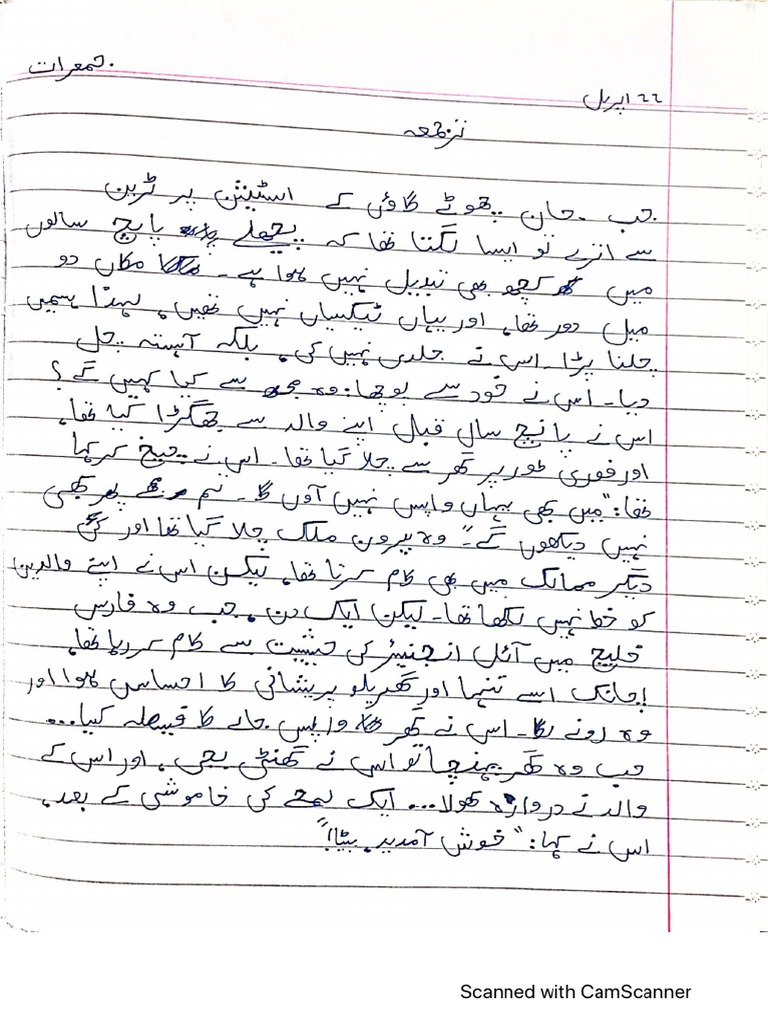 جمعرات
۲۲ اپریل
ترجمہ
جب جان چھوٹے گاؤں کے اسٹیشن پر ٹرین
سے اترے تو ایسا لگتا تھا کہ پچھلے پانچ سالوں
میں کچھ بھی تبدیل نہیں ہوا ہے۔ مکان دو
میل دور تھا، اور یہاں ٹیکسیاں نہیں تھیں، لہذا ہمیں
چلنا پڑا۔ اس نے جلدی نہیں کی، بلکہ آہستہ چل
دیا۔ اس نے خود سے پوچھا: وہ مجھ سے کیا کہیں گے؟
اس نے پانچ سال قبل اپنے والد سے جھگڑا کیا تھا،
اور فوری طور پر گھر سے چلا گیا تھا۔ اس نے چیخ کر کہا
تھا: "میں بھی یہاں واپس نہیں آؤں گا۔ تم مجھے پھر کبھی
نہیں دیکھوں گے۔" وہ بیرون ملک چلا گیا تھا اور کئی
دیگر ممالک میں بھی کام کرتا تھا، لیکن اس نے اپنے والدین
کو خط نہیں لکھا تھا۔ لیکن ایک دن، جب وہ فارس
خلیج میں آئل انجنیئر کی حیثیت سے کام کر رہا تھا،
اچانک اسے تنہا اور گھریلو پریشانی کا احساس ہوا اور
وہ رونے لگا۔ اس نے گھر واپس جانے کا فیصلہ کیا...
جب وہ گھر پہنچا تو اس نے گھنٹی بجی، اور اس کے
والد نے دروازہ کھولا... ایک لمحے کی خاموشی کے بعد،
اس نے کہا: "خوش آمدید، بیٹا!"
Scanned with CamScanner